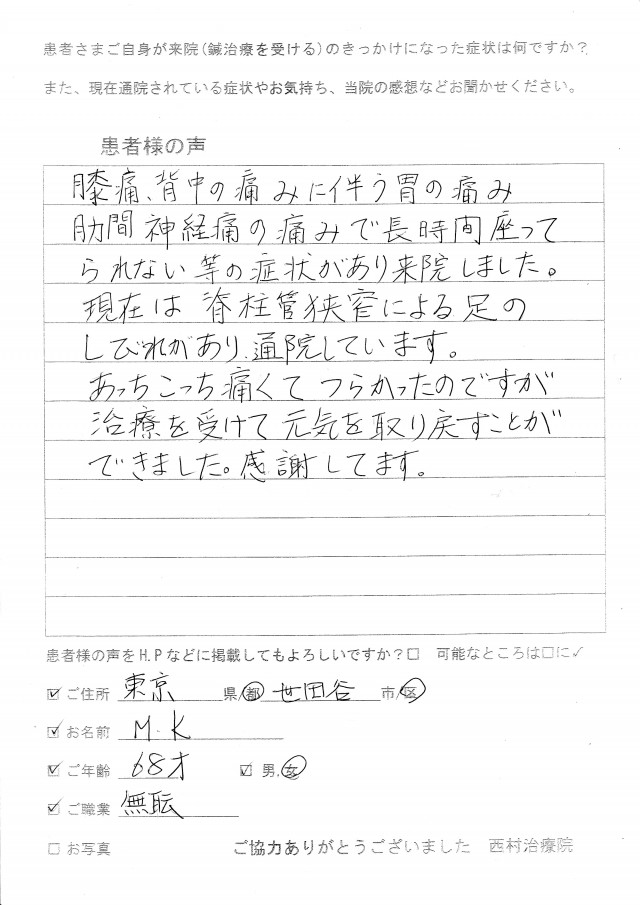 患者さまご自身が来院(鍼治療を受ける)のきっかけになった症状は何ですか?
また、現在通院されている症状やお気持ち、当院の感想などお聞かせください。
患者様の声
膝痛、背中の痛みに伴う胃の痛み
肋間神経痛の痛みで長時間座って
られない等の症状があり来院しました。
現在は脊柱管狭窄による足の
しびれがあり、通院しています。
あっちこっち痛くてつらかったのですが
治療を受けて元気を取り戻すことが
できました。感謝してます。
患者様の声をH.Pなどに掲載してもよろしいですか?□ 可能なところは□に✓
☑ ご住所 東京 県/都 世田谷 市/区
☑ お名前 M.K
☑ ご年齢 68才 ☑ 男.女
☑ ご職業 無職
□ お写真 ご協力ありがとうございました 西村治療院